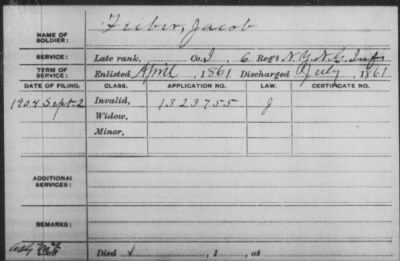 NAME OF SOLDIER: Feiber, Jacob
SERVICE: Late rank, Co. I, 6 Reg't N.Y.N.G. Inf.
TERM OF SERVICE: Enlisted April, 1861 Discharged July, 1861
DATE OF FILING. CLASS. APPLICATION NO. LAW. CERTIFICATE NO.
1904 Sept. 2 Invalid, 1323755 J
Widow,
Minor,
ADDITIONAL SERVICES:
REMARKS:
Died , 1 , at